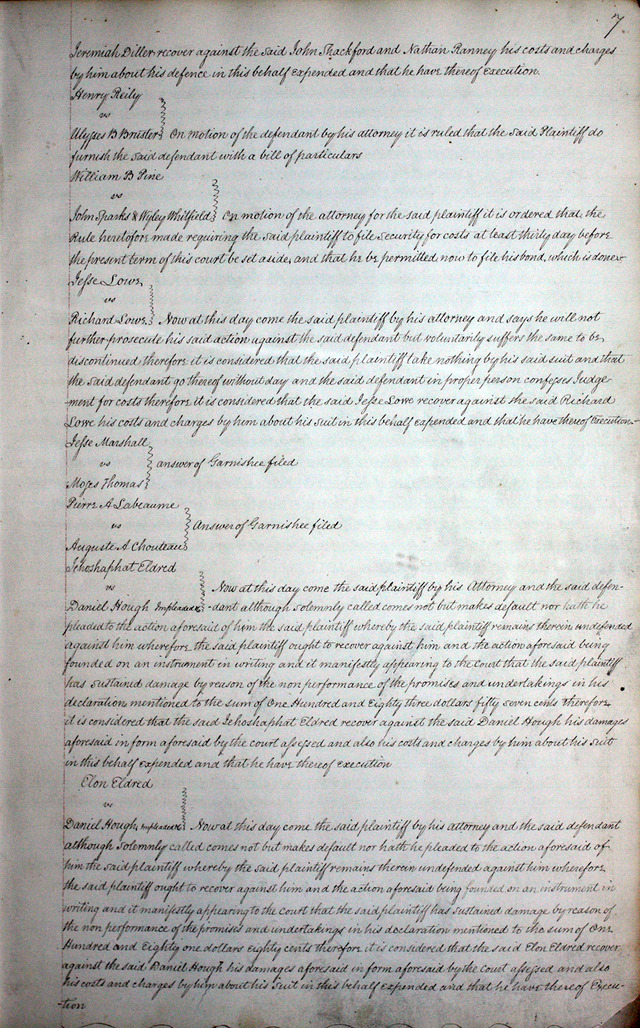 7
Jeremiah Ditter recover against the said John Shackford and Nathan Ranney his costs and charges
by him about his defence in this behalf expended and that he have thereof execution.
Henry Reily
vs
Ulysses B Bruster On motion of the defendant by his attorney it is ruled that the said Plaintiff do
furnish the said defendant with a bill of particulars
William B Pine
vs
John Sparks & Wyley Whitfield On motion of the attorney for the said plaintiff it is ordered that, the
Rule heretofore made requiring the said plaintiff to file security for costs at least thirty day before
the present term of this court be set aside, and that he be permitted now to file his bond, which is done
Jesse Lowe
vs
Richard Lowe Now at this day come the said plaintiff by his attorney and says he will not
further prosecute his said action against the said defendant but voluntarily suffers the same to be
discontinued therefore it is considered that the said plaintiff take nothing by his said suit and that
the said defendant go thereof without day and the said defendant in proper person confesses Judge-
ment for costs therefore it is considered that the said Jesse Lowe recover against the said Richard
Lowe his costs and charges by him about his suit in this behalf expended and that he have thereof Execution
Jesse Marshall
vs answer of Garnishee filed
Moses Thomas
Pierre A Labeaume
vs Answer of Garnishee filed
Auguste A Chouteau
Jehoshaphat Eldred
vs Now at this day come the said plaintiff by his Attorney and the said defen-
Daniel Hough Impleaded -dant although solemnly called comes not but makes default nor hath he
pleaded to the action aforesaid of him the said plaintiff whereby the said plaintiff remains therein undefended
against him wherefore the said plaintiff ought to recover against him and the action aforesaid being
founded on an instrument in writing and it manifestly appearing to the court that the said plaintiff
has sustained damage by reason of the non performance of the promises and undertakings in his
declaration mentioned to the sum of One Hundred and Eighty three dollars fifty seven cents therefore
it is considered that the said Jehoshaphat Eldred recover against the said Daniel Hough his damages
aforesaid in form aforesaid by the court assessed and also his costs and charges by him about his suit
in this behalf expended and that he have thereof execution
Elon Eldred
vs
Daniel Hough, Impleaded Now at this day come the said plaintiff by his attorney and the said defendant
although solemnly called comes not but makes default nor hath he pleaded to the action aforesaid of
him the said plaintiff whereby the said plaintiff remains therein undefended against him wherefore
the said plaintiff ought to recover against him and the action aforesaid being founded on an instrument in
writing and it manifestly appearing to the court that the said plaintiff has sustained damage by reason of
the non performance of the promises and undertakings in his declaration mentioned to the sum of One
Hundred and Eighty one dollars Eighty cents therefore it is considered that the said Elon Eldred recover
against the said Daniel Hough his damages aforesaid in form aforesaid by the court assessed and also
his costs and charges by him about his suit in this behalf expended and that he have thereof Execu-
-tion